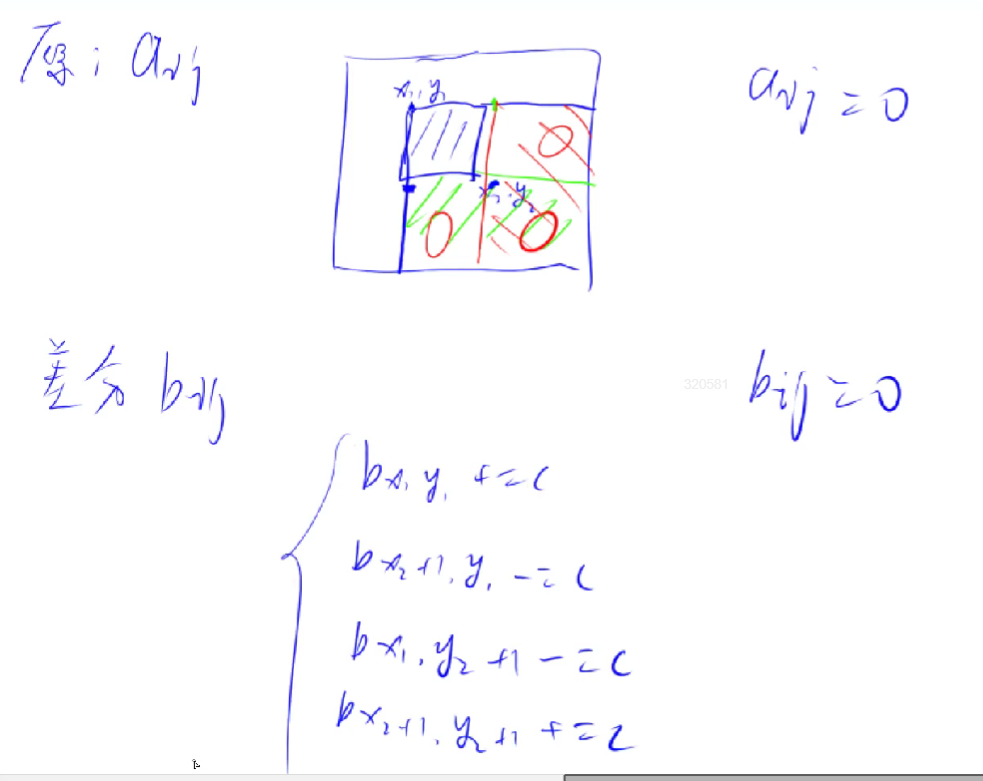 原: aij
aij = 0
x1, y1
x2, y2
差分 bij
320581
bij = 0
bx1, y1 += c
bx2+1, y1 -= c
bx1, y2+1 -= c
bx2+1, y2+1 += c